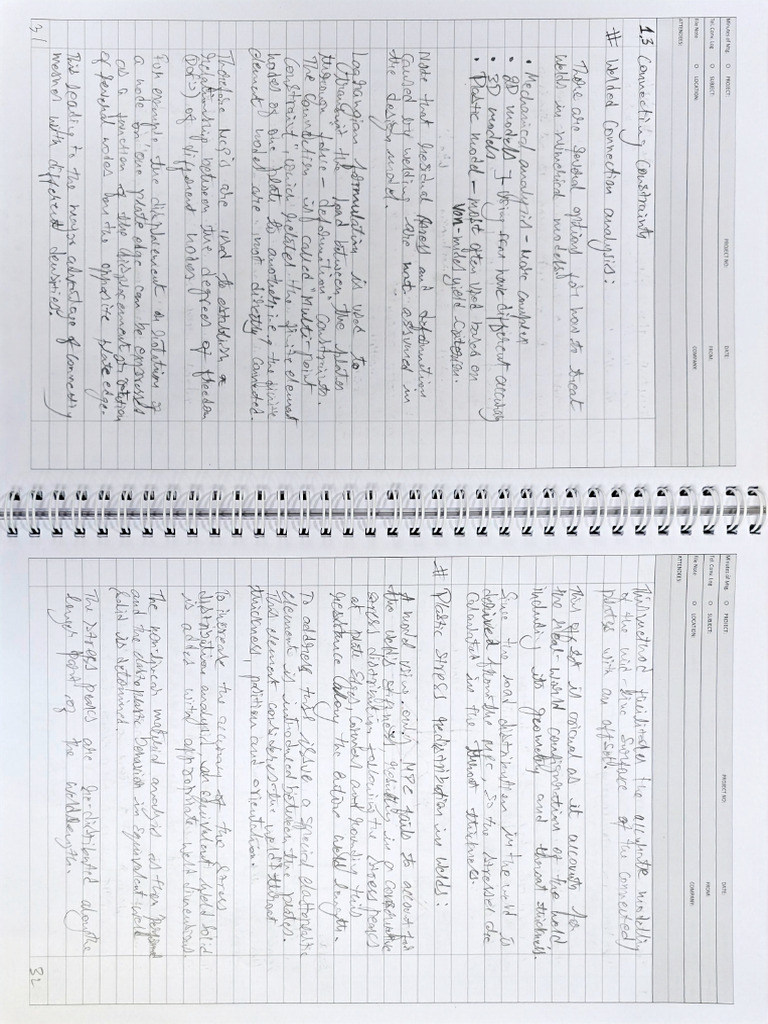 Minutes of Mtg. ○ PROJECT: PROJECT NO: DATE:
Tel. Conv. Log ○ SUBJECT: FROM:
File Note ○ LOCATION: COMPANY:
ATTENDEES:
1.3 Connecting Constraints
# Welded Connection analysis:
There are several options for how to treat
welds in numerical models.
• Mechanical analysis - More complex
• 2D models
• 3D models } - Vary have different accuracy
• Plastic model - most often used based on
Von-mises yield Criterion.
Note that Residual stress and deformation
caused by welding are not assumed in
the design model.
Lagrangian formulation is used to
transmit the load between the plates
through force - deformation Constraints.
The Connection is called "Multi-point
Constraint", which relates the finite element
nodes of one plate to another i.e. the finite
element model are not directly connected.
Therefore MCP's are used to establish a
relationship between the degrees of freedom
(DOF's) of different nodes
For example the displacement or rotation of
a node on one plate edge can be expressed
as a function of the displacement or rotation
of several nodes on the opposite plate edge.
This leading to the major advantage of connecting
meshes with different densities.
31
Minutes of Mtg. ○ PROJECT: PROJECT NO: DATE:
Tel. Conv. Log ○ SUBJECT: FROM:
File Note ○ LOCATION: COMPANY:
ATTENDEES:
This method facilitates the accurate modelling
of the mid-line surface of the connected
plates with an offset.
This offset is crucial as it accounts for
the real world configuration of the weld
including its geometry and throat thickness.
Since the load distribution in the weld is
derived from the MPC, so the stresses are
calculated in the throat thickness.
# Plastic stress redistribution in welds:
A model using only MPC fails to account for
the welds stiffness resulting in a conservative
stress distribution following the stress peaks
at plate edges, corners and rounding this
resistance along the entire weld length.
To address this issue a special elastoplastic
element is introduced between the plates.
This element considers the weld throat
thickness, position and orientation.
To increase the accuracy of the stress
distribution analysis an equivalent weld solid
is added with appropriate weld dimensions
The nonlinear material analysis is then
and the elastoplastic behavior in equivalent weld
solid is determined.
The stress peaks are re-distributed along the
longer part of the weld length.
32